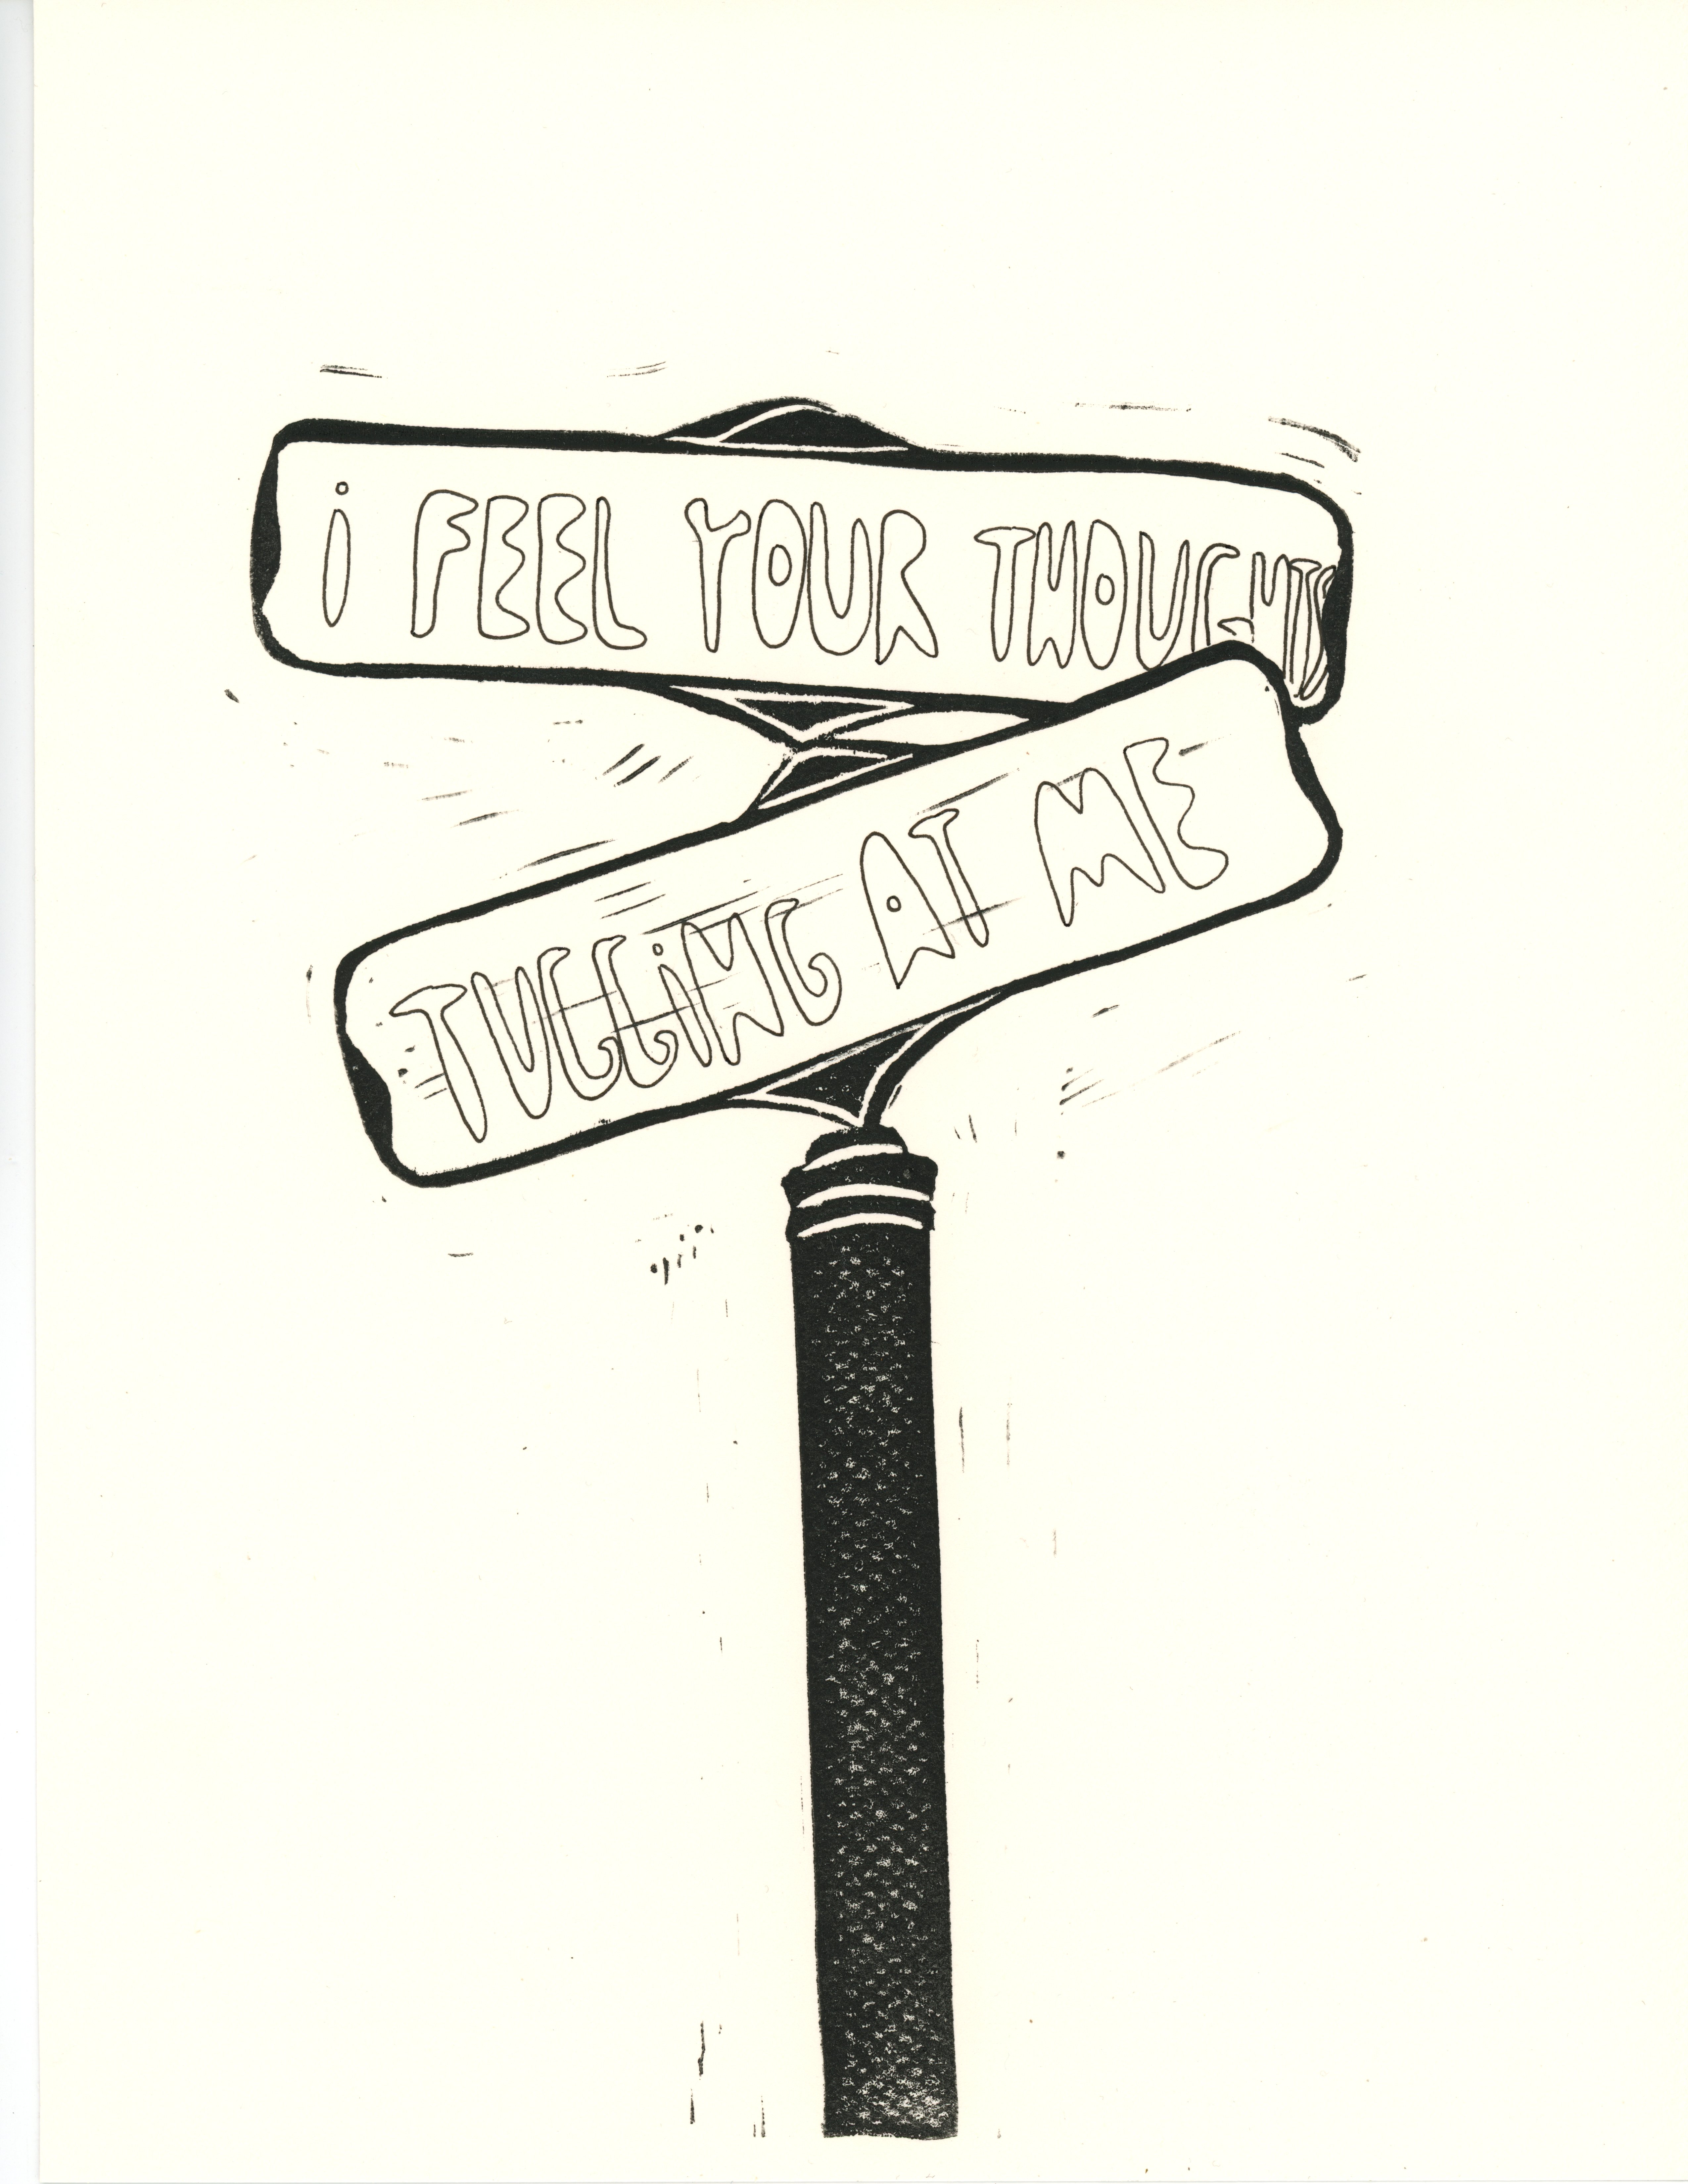 i FEEL YOUR THOUGHTS
TUGGiNG AT ME